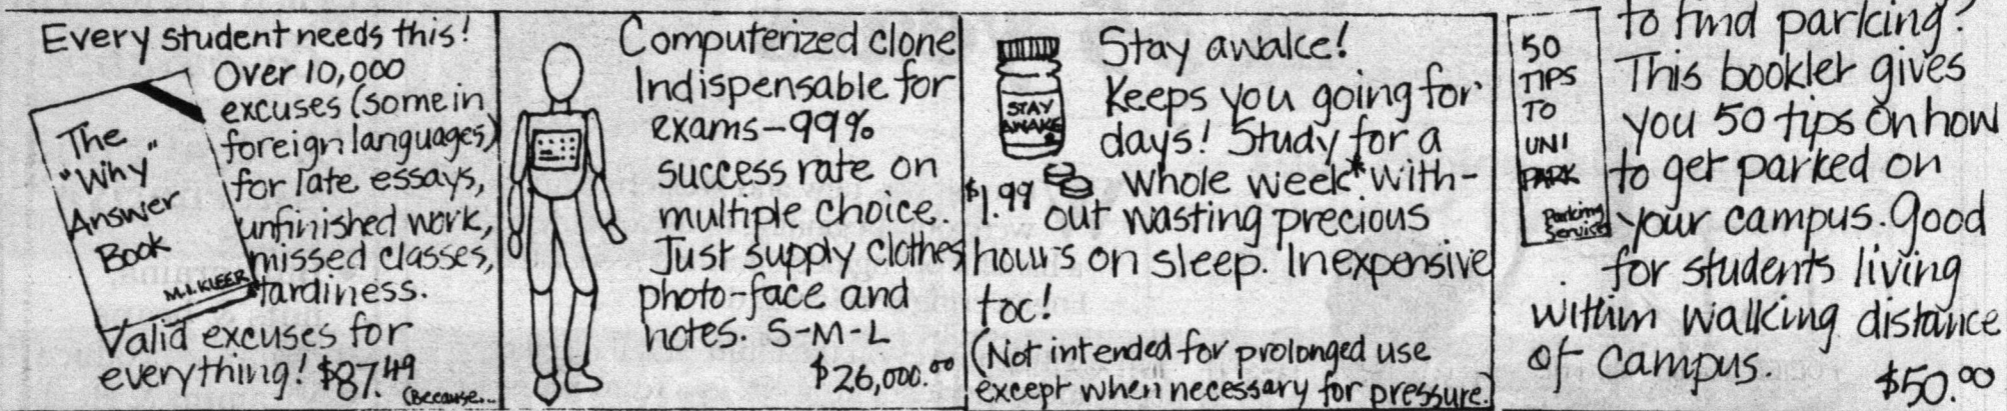 Every student needs this!
Over 10,000
excuses (some in
foreign languages)
for late essays,
unfinished work,
missed classes,
tardiness.
Valid excuses for
everything! $87.49
(Because...
The
"Why"
Answer
Book
M.I. KLEER
Computerized clone
Indispensable for
exams-99%
success rate on
multiple choice.
Just supply clothes
photo-face and
notes. S-M-L
$26,000.00
Stay awake!
Keeps you going for
days! Study for a
whole week* with-
out wasting precious
hours on sleep. Inexpensive
too!
(Not intended for prolonged use
except when necessary for pressure.)
STAY
AWAKE
$1.99
50
TIPS
TO
UNI
PARK
Parking
Service
to find parking?
This booklet gives
you 50 tips on how
to get parked on
your campus. Good
for students living
within walking distance
of campus.
$50.00